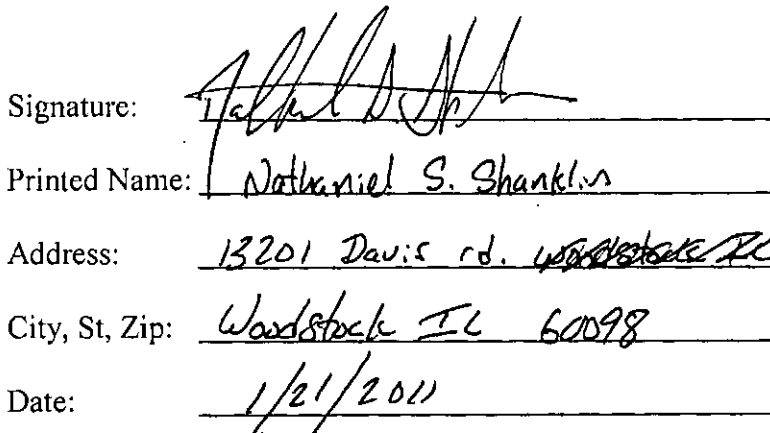 Signature:
Printed Name: Nathaniel S. Shanklin
Address: 13201 Davis rd. woodstock IL
City, St, Zip: Woodstock IL 60098
Date: 1/21/2011